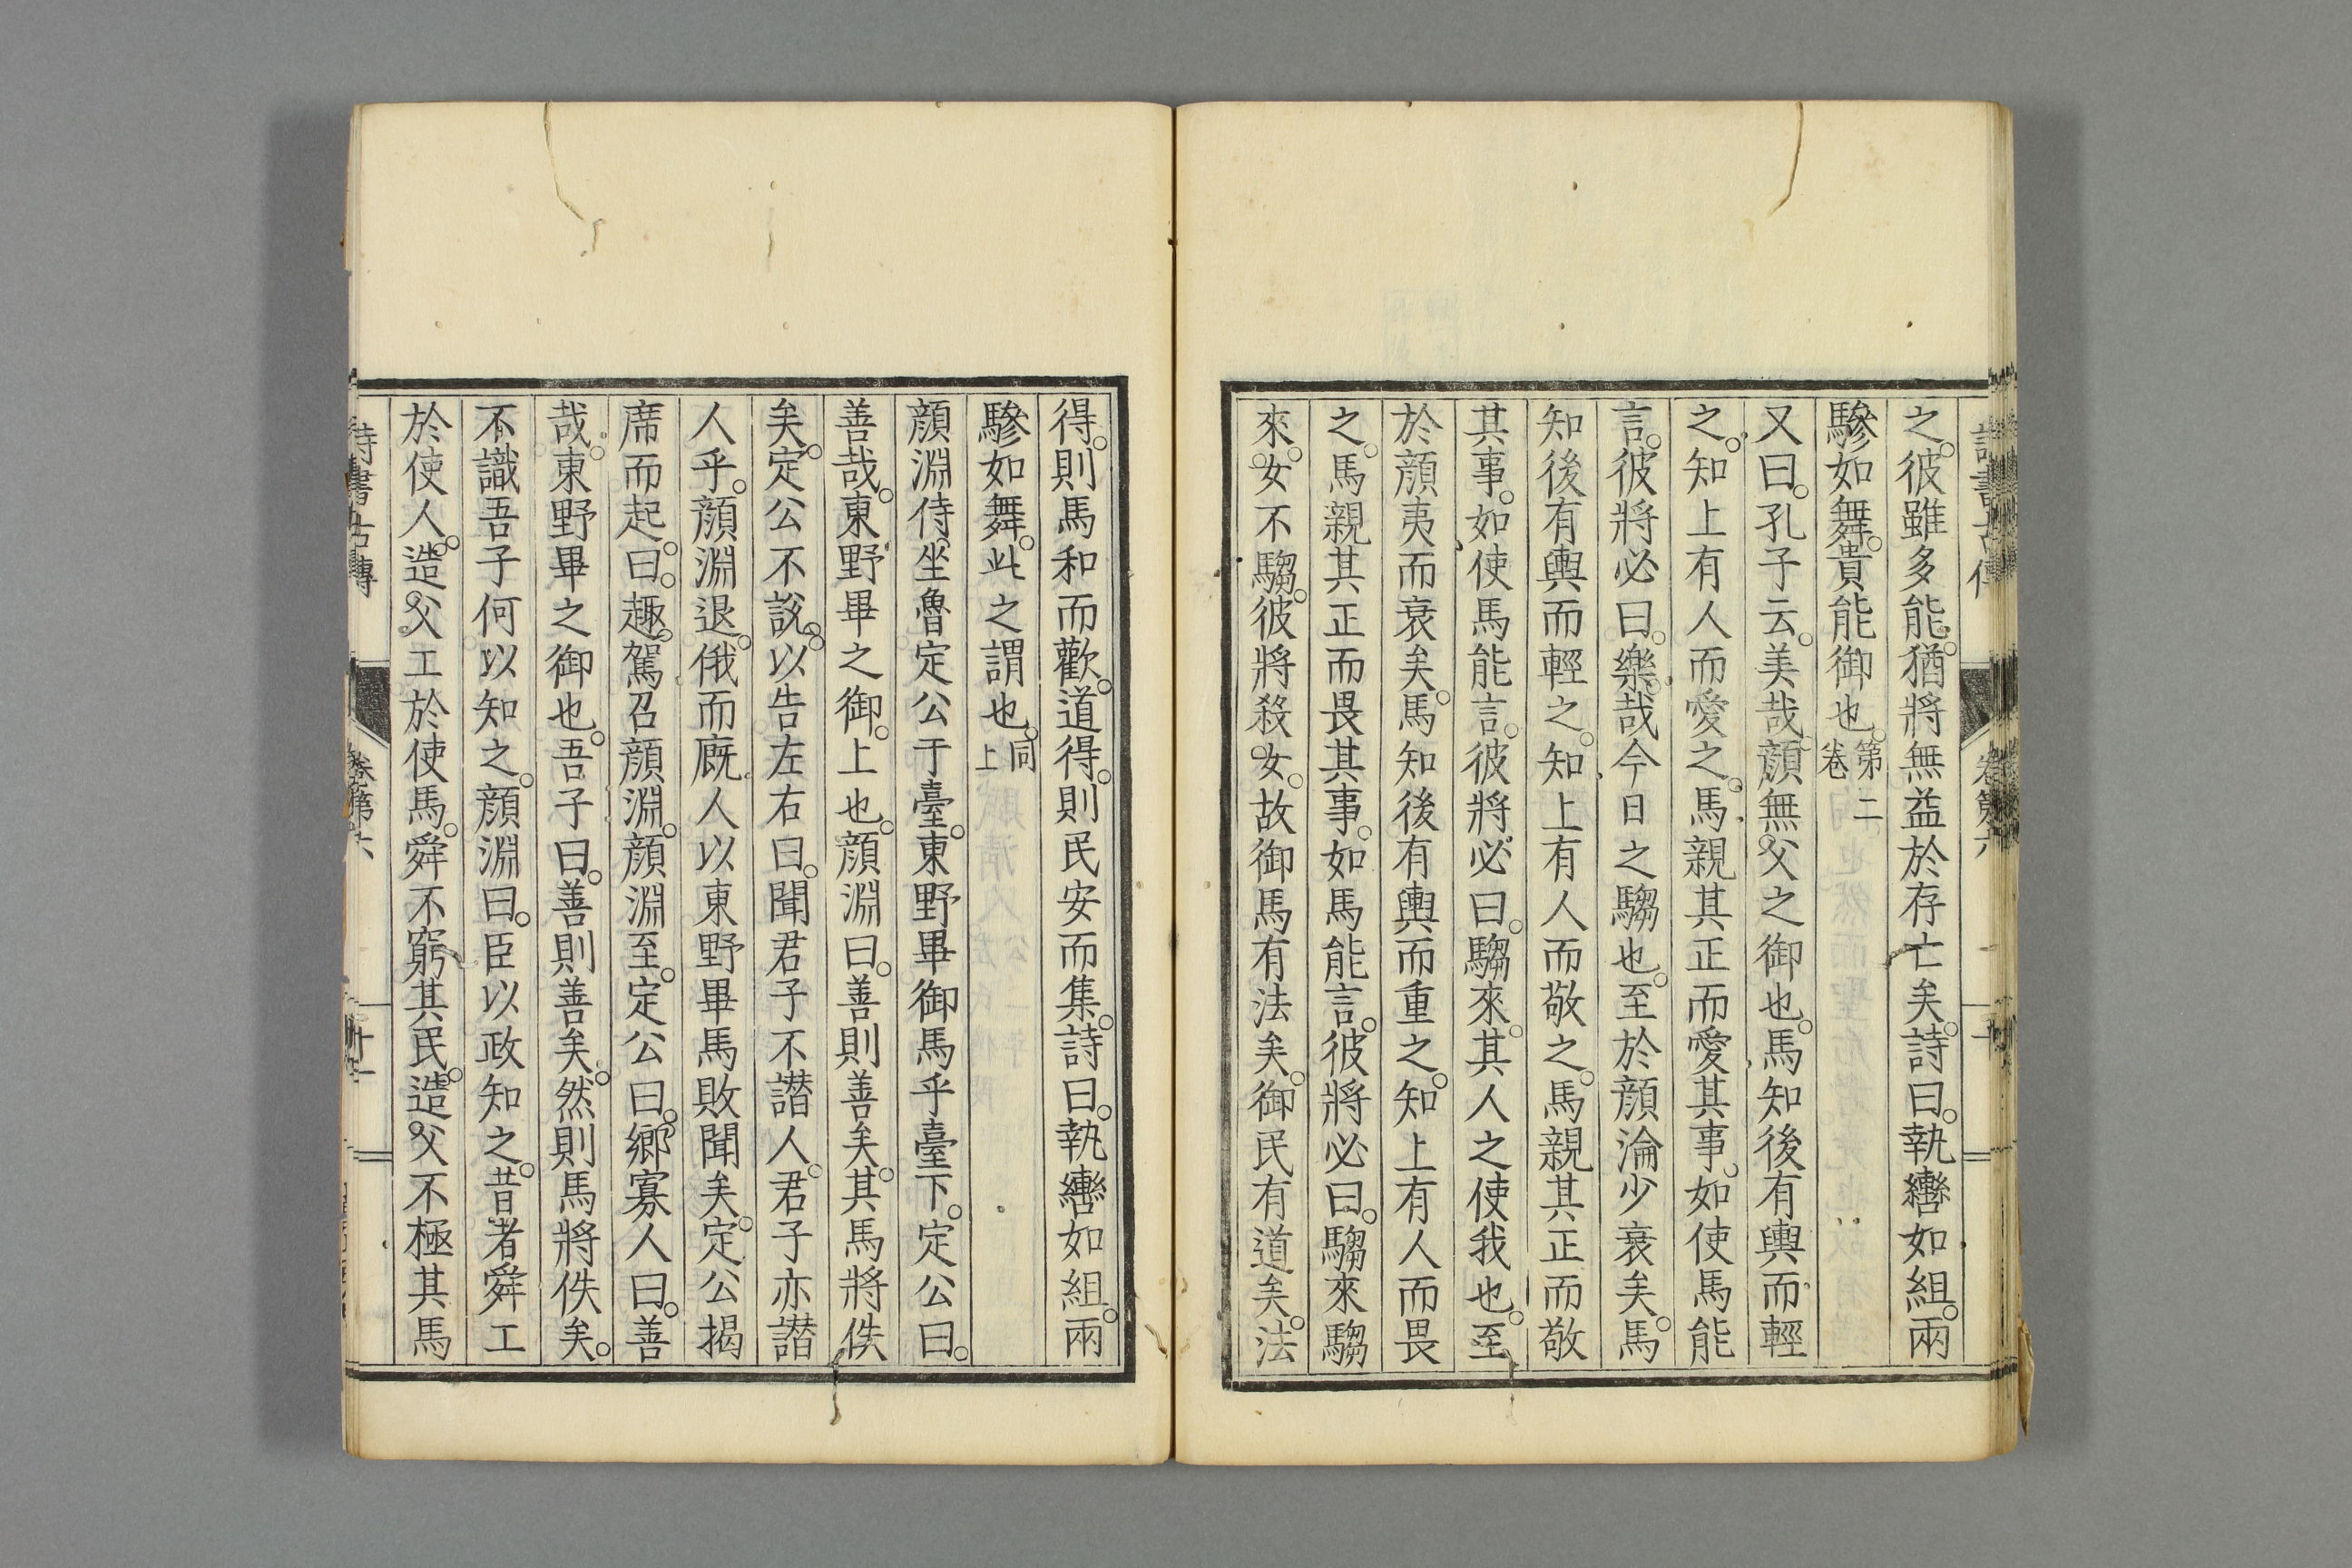 之。彼雖多能。猶將無益於存亡矣。詩曰。執轡如組。兩
驂如舞。貴能御也。第二卷
又曰。孔子云。美哉顏無父之御也。馬知後有輿而輕
之。知上有人而愛之。馬親其正而愛其事。如使馬能
言。彼將必曰。樂哉今日之騶也。至於顏淪少衰矣。馬
知後有輿而輕之。知上有人而敬之。馬親其正而敬
其事。如使馬能言。彼將必曰。騶來。其人之使我也。至
於顏夷而衰矣。馬知後有輿而重之。知上有人而畏
之。馬親其正而畏其事。如馬能言。彼將必曰。騶來騶
來。女不騶。彼將殺女。故御馬有法矣。御民有道矣。法
得。則馬和而歡。道得。則民安而集。詩曰。執轡如組。兩
驂如舞。此之謂也。同上
顏淵侍坐魯定公于臺。東野畢御馬乎臺下。定公曰。
善哉。東野畢之御。上也。顏淵曰。善則善矣。其馬將佚
矣。定公不說。以告左右曰。聞君子不譖人。君子亦譖
人乎。顏淵退。俄而廐人以東野畢馬敗聞矣。定公揭
席而起。曰。趣駕召顏淵。顏淵至。定公曰。鄉寡人曰。善
哉。東野畢之御也。吾子曰。善則善矣。然則馬將佚矣。
不識吾子何以知之。顏淵曰。臣以政知之。昔者舜工
於使人。造父工於使馬。舜不窮其民。造父不極其馬
詩書古傳
卷第六
十一